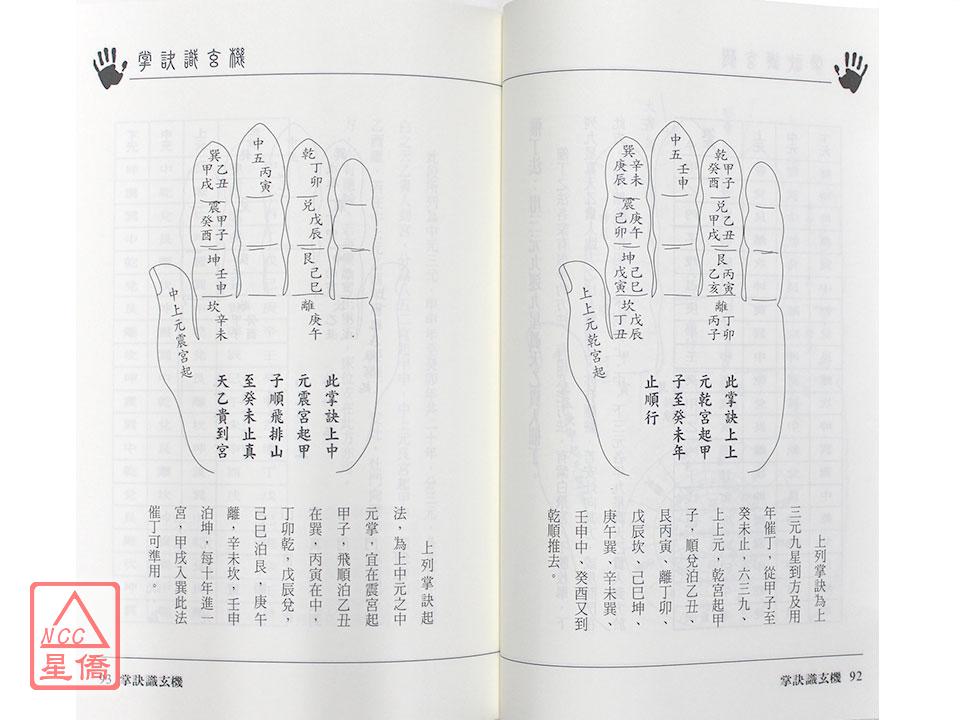 乾 甲子 癸酉
兌 乙丑 甲戌
艮 丙寅 乙亥
離 丁卯 丙子
中五 壬申
巽 辛未 庚辰
震 庚午 己卯
坤 己巳 戊寅
坎 戊辰 丁丑
上上元乾宮起
此掌訣上上
元乾宮起甲
子至癸未年
止順行
上列掌訣為上
三元九星到方及用
年催丁，從甲子至
癸未止，六三九、
上上元，乾宮起甲
子，順兌泊乙丑、
艮丙寅、離丁卯、
戊辰坎、己巳坤、
庚午巽、辛未巽、
壬申中、癸酉又到
乾順推去。
掌訣識玄機 92
掌訣識玄機
乾 丁卯
兌 戊辰
艮 己巳
離 庚午
中五 丙寅
巽 乙丑 甲戌
震 甲子 癸酉
坤 壬申
坎 辛未
中上元震宮起
此掌訣上中
元震宮起甲
子順飛排山
至癸未止真
天乙貴到宮
上列掌訣起
法，為上中元之中
元掌，宜在震宮起
甲子，飛順泊乙丑
在巽，丙寅在中，
丁卯乾，戊辰兌，
己巳泊艮，庚午
離，辛未坎，壬申
泊坤，每十年進一
宮，甲戌入巽此法
催丁可準用。
93 掌訣識玄機
NCC
星僑